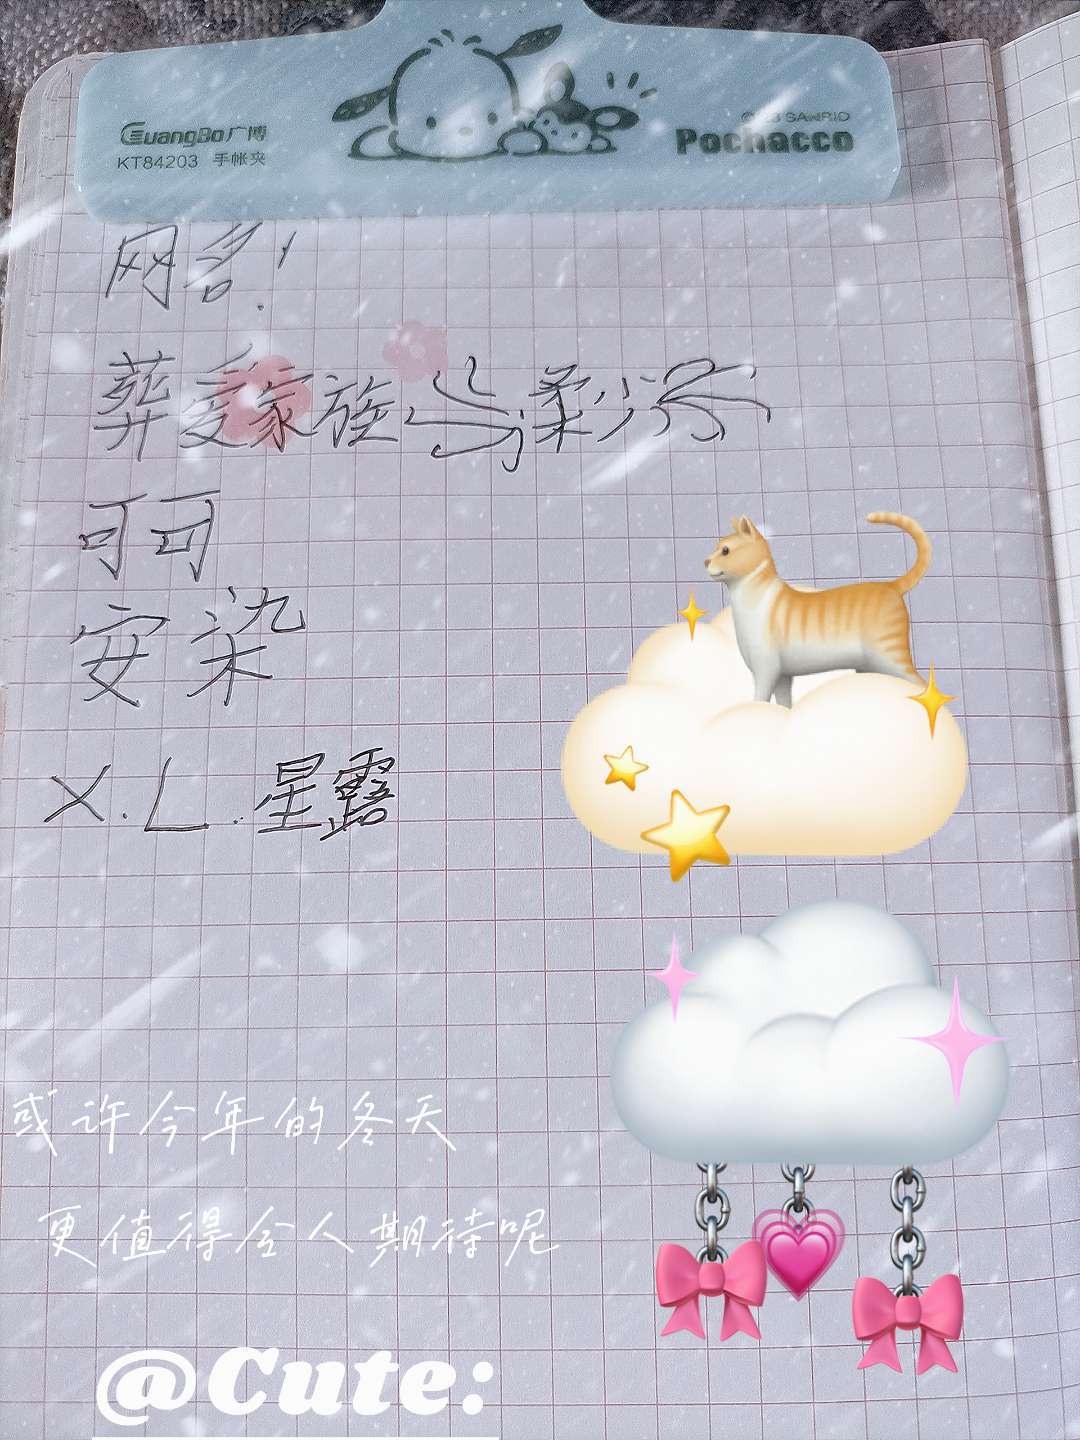 GuangBo广博
KT84203 手帐夹
SANRIO
Pochacco
网名!
葬爱家族 柔少
可可
安染
X.L.星露
或许今年的冬天
更值得令人期待呢
@Cute: